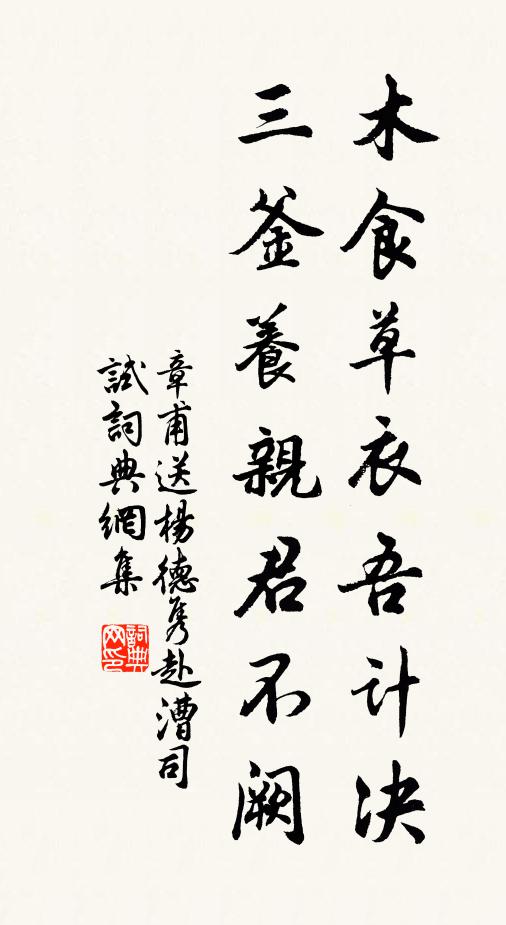 木食草衣吾计决
三釜養親君不闕
章甫送楊德隽赴漕司
試詞典網集
詞典网印